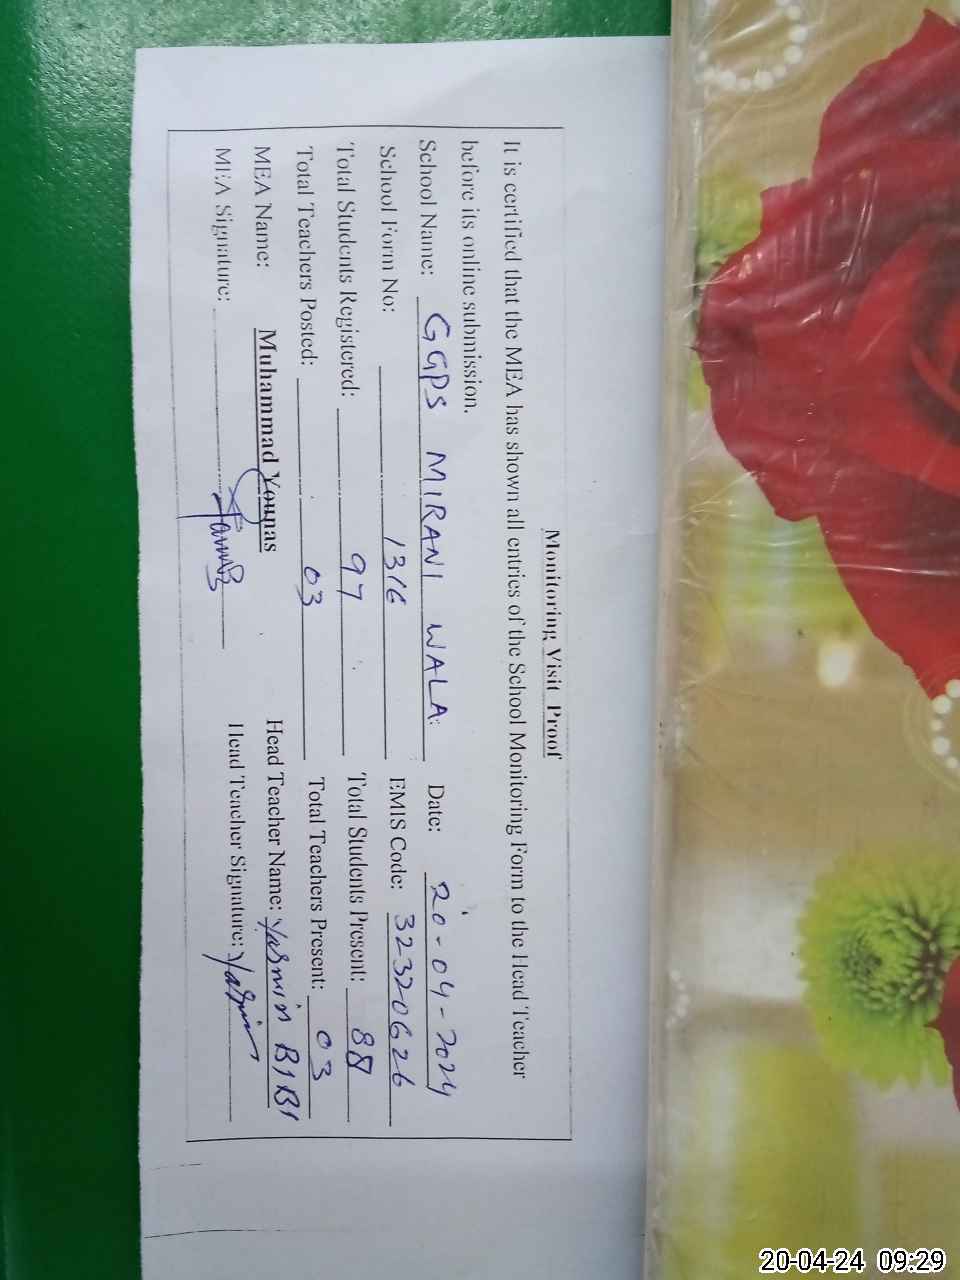 Monitoring Visit Proof
It is certified that the MEA has shown all entries of the School Monitoring Form to the Head Teacher
before its online submission.
School Name: GGPS MIRANI WALA Date: 20-04-2024
School Form No: 1316 EMIS Code: 32320626
Total Students Registered: 97 Total Students Present: 88
Total Teachers Posted: 03 Total Teachers Present: 03
MEA Name: Muhammad Younas Head Teacher Name: Yasmin BiBi
MEA Signature: Head Teacher Signature: Yasmin
20-04-24 09:29